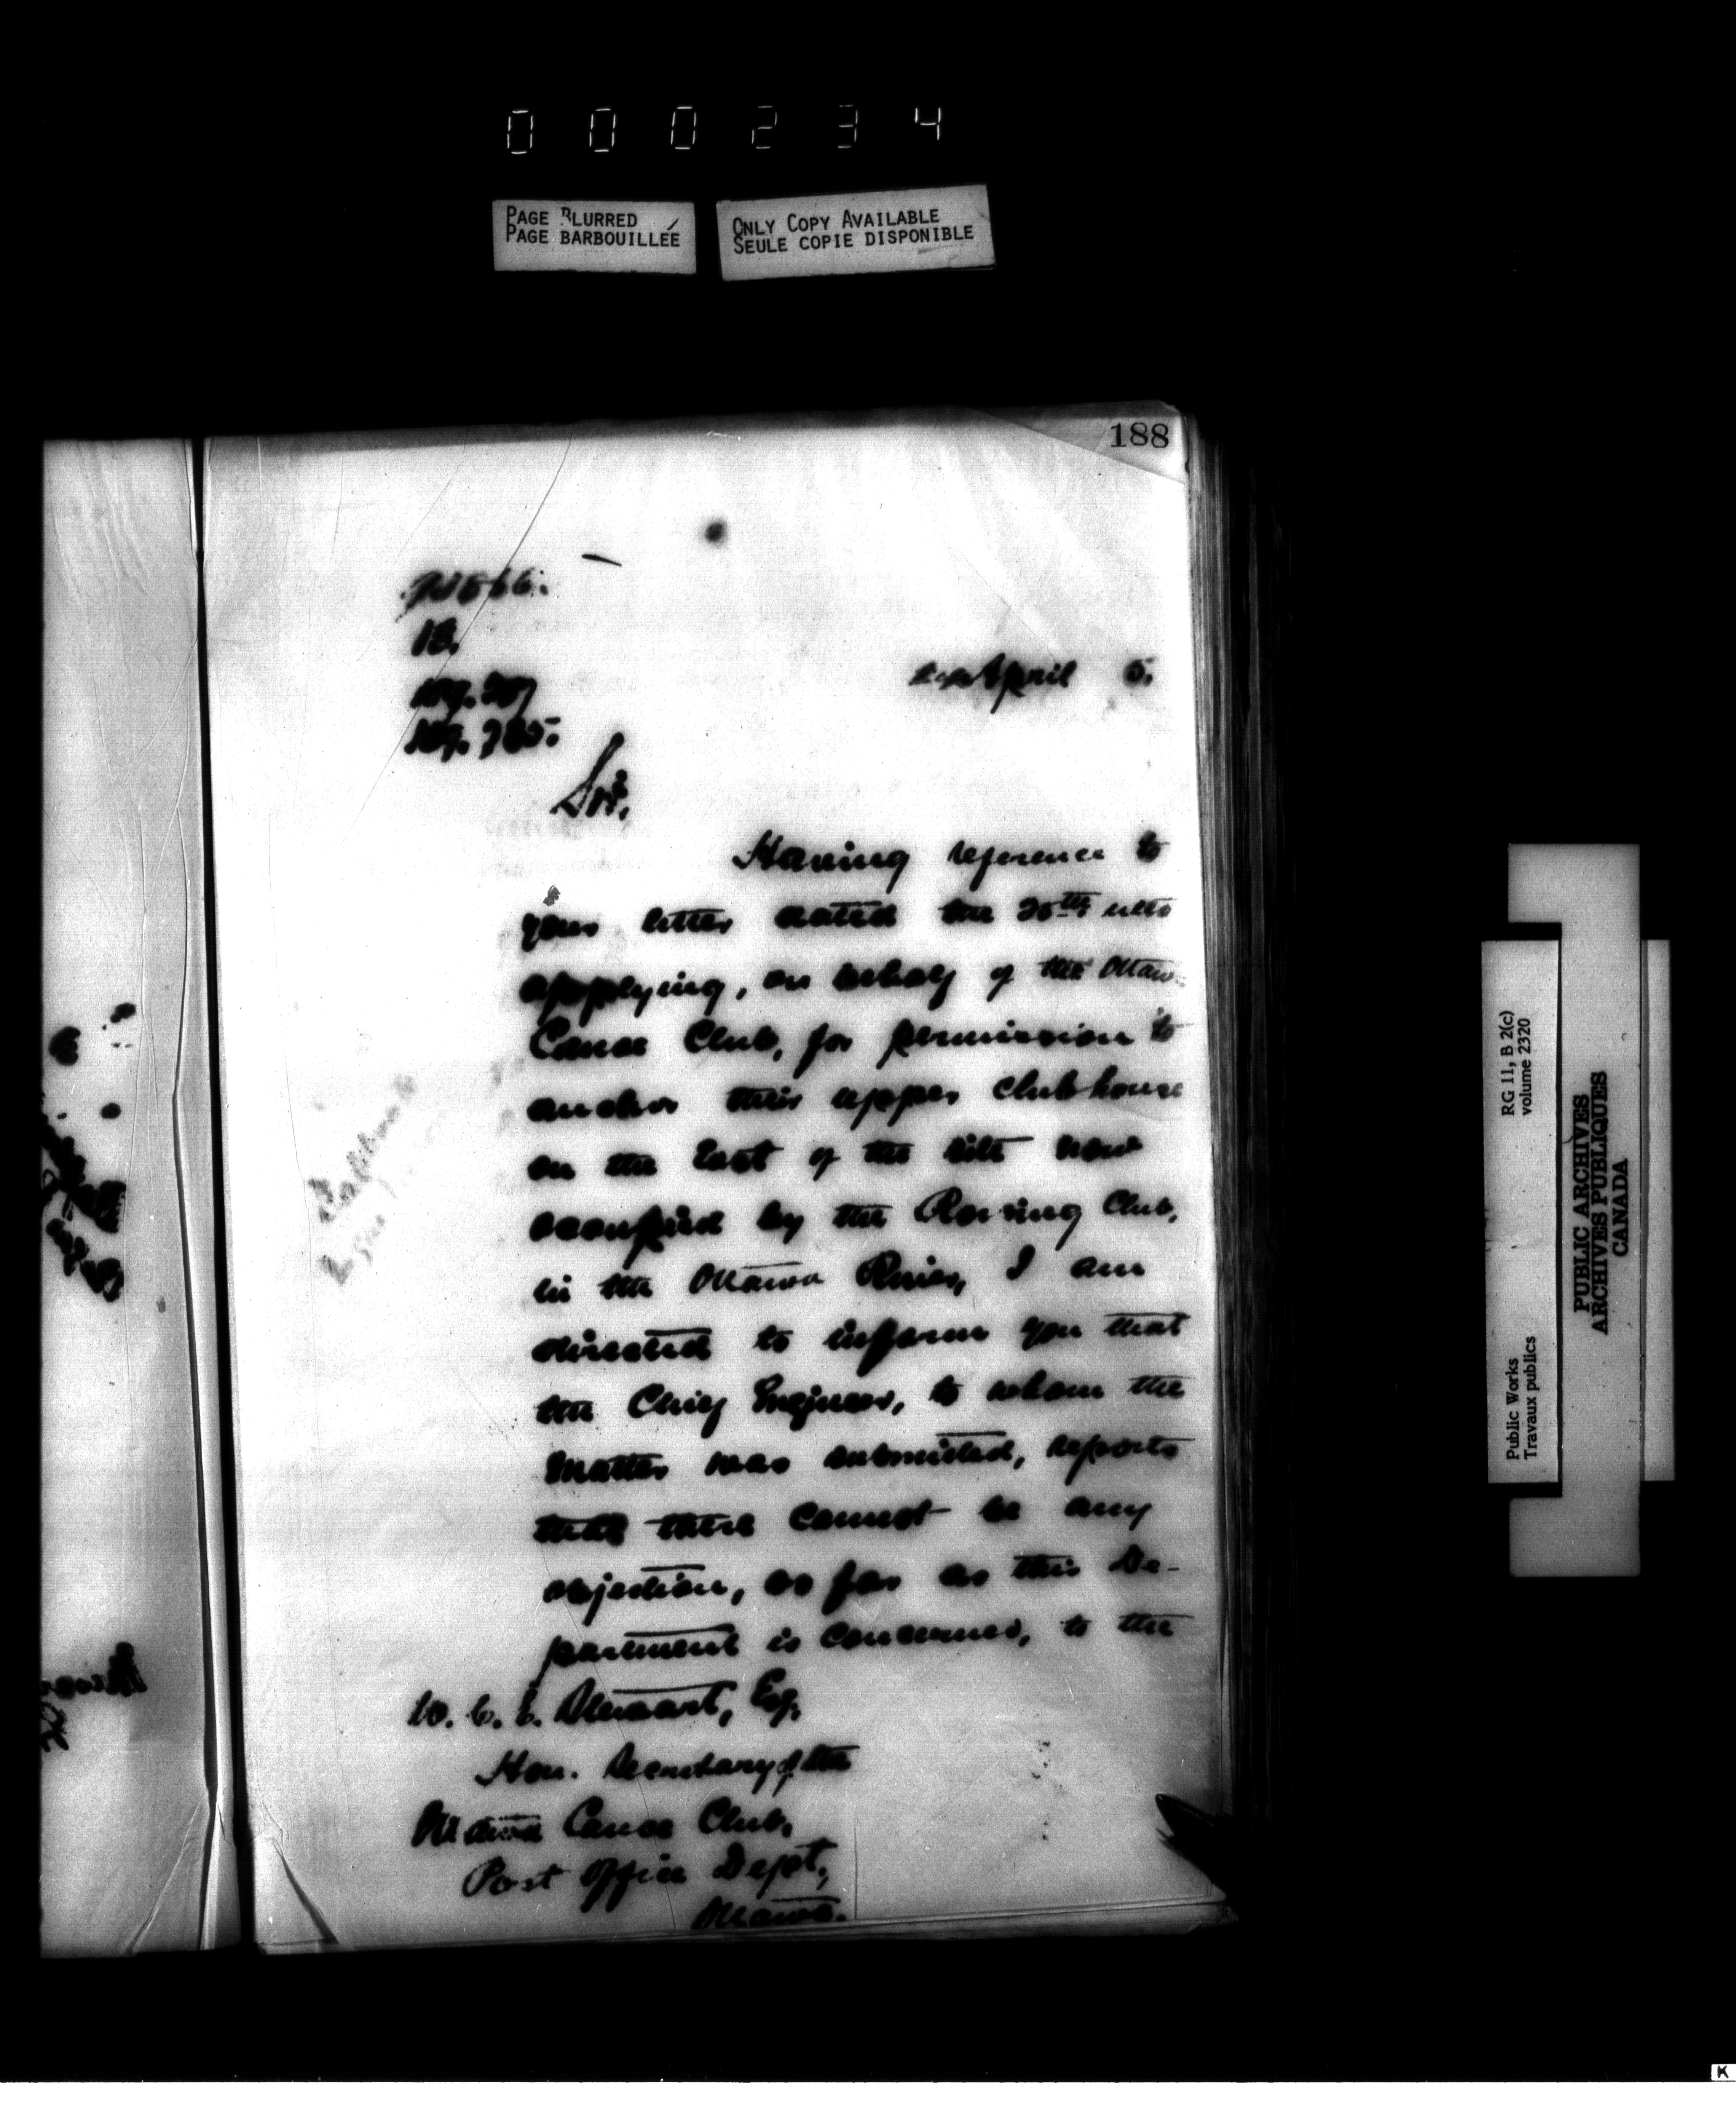 000234
PAGE BLURRED
PAGE BARBOUILLÉE
ONLY COPY AVAILABLE
SEULE COPIE DISPONIBLE
188
18.
April 5.
Sir,
Having reference to
your letter dated the ulto
applying, on behalf of the Ottawa
Canoe Club, for permission to
anchor their upper club house
on the East of the site now
occupied by the Rowing Club,
in the Ottawa River, I am
directed to inform you that
the Chief Engineer, to whom the
matter was submitted, reports
that there cannot be any
objection, as far as this De-
partment is concerned, to the
Stewart, Esq.
Hon. Secretary of the
Ottawa Canoe Club,
Post Office Dept,
Ottawa.
RG 11, B 2(c)
volume 2320
Public Works
Travaux publics
PUBLIC ARCHIVES
ARCHIVES PUBLIQUES
CANADA
K